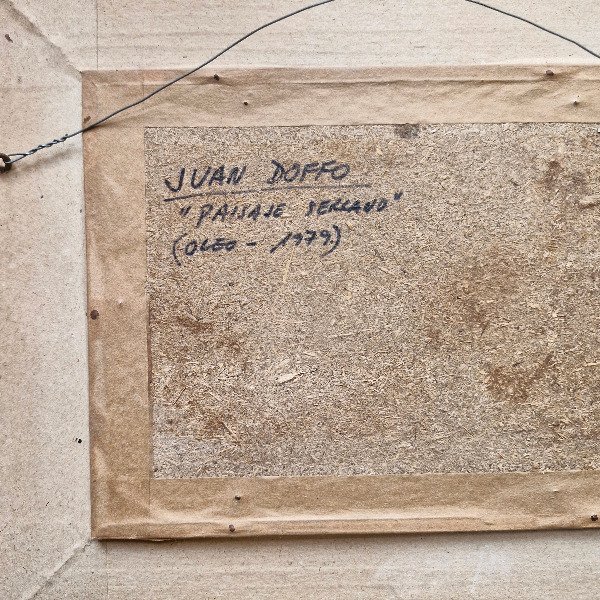 JUAN DOFFO
"PAISAJE SERRANO"
(OLEO - 1979.)